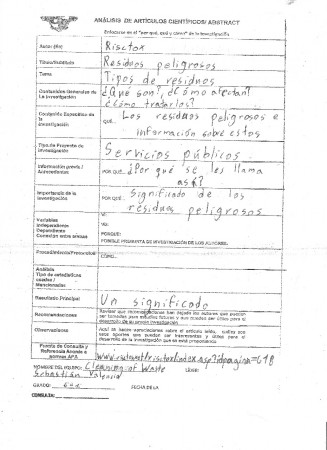 ANÁLISIS DE ARTÍCULOS CIENTÍFICOS/ ABSTRACT
Enfocarse en el "por qué, qué y cómo" de la investigación
Autor (es) Risctox
Título/Subtítulo Residuos peligrosos
Tema Tipos de residuos
Contenidos Generales de La investigación ¿Qué son?, ¿Cómo afectan?
¿Cómo tratarlos?
Contenido Específico de la investigación QUÉ: Los residuos peligrosos e
información sobre estos
Tipo de Proyecto de investigación Servicios públicos
Información previa / Antecedentes POR QUÉ: ¿Por qué se les llama
así?
Importancia de la investigación POR QUÉ: Significado de los
residuos peligrosos
Variables VI:
Independientes VD:
Dependientes PORQUE:
Conexión entre ambas POSIBLE PREGUNTA DE INVESTIGACIÓN DE LOS AUTORES:
Procedimientos/Protocolos CÓMO:
Análisis
Tipo de estadísticas
usadas /
Mencionadas
Resultado Principal Un significado
Recomendaciones Revisar que recomendaciones han dejado los autores que puedan
ser tomadas para estudios futuros y que puedan ser útiles para el
desarrollo de su propia investigación
Observaciones Aquí se hacen anotaciones sobre el artículo leído, cuáles son
los aportes que puedan ser interesantes y útiles para el
desarrollo de la investigación que se está proponiendo
Fuente de Consulta y
Referencia Acorde a
normas APA
NOMBRE DEL EQUIPO: Cleaning of Waste LÍDER:
Sebastián Valencia
GRADO: FECHA DE LA
CONSULTA: